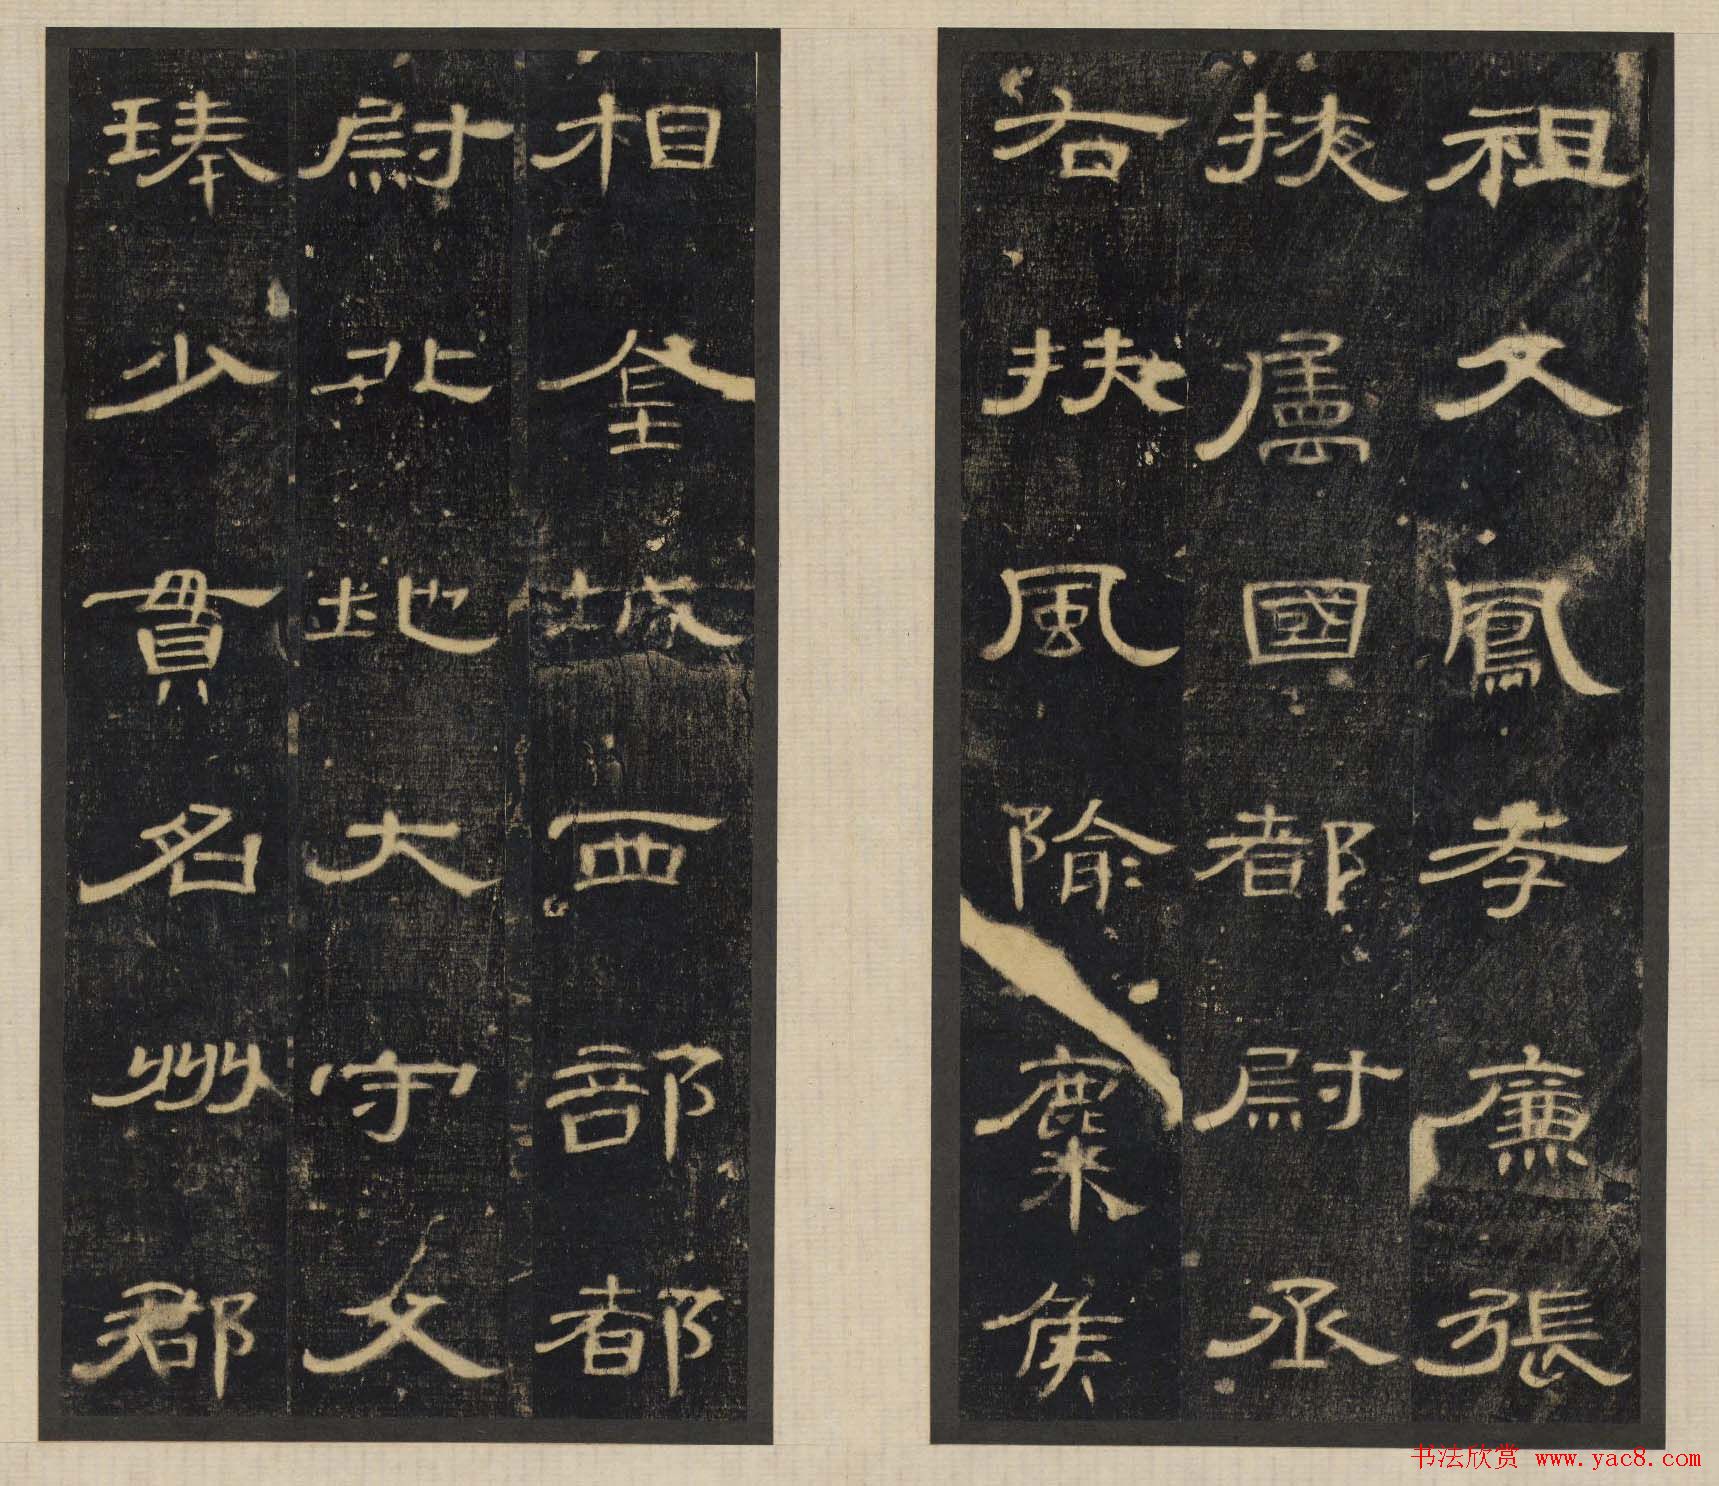 祖父鳳孝廉張
掖屬國都尉丞
右扶風隃麋侯
相金城西部都
尉北地大守父
琫少貫名州郡
书法欣赏 www.yac8.com